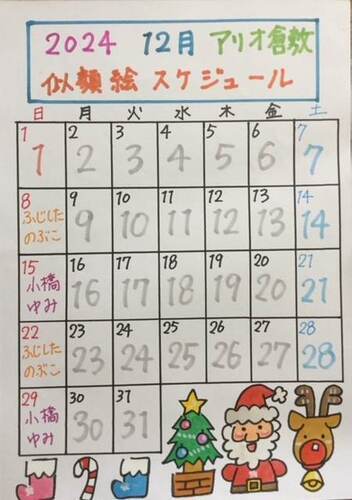 2024 12月 アリオ倉敷
似顔絵 スケジュール
日 月 火 水 木 金 土
1 2 3 4 5 6 7
1 2 3 4 5 6 7
8 9 10 11 12 13 14
ふじした 9 10 11 12 13 14
のぶこ
15 16 17 18 19 20 21
小橋 16 17 18 19 20 21
ゆみ
22 23 24 25 26 27 28
ふじした 23 24 25 26 27 28
のぶこ
29 30 31
小橋 30 31
ゆみ